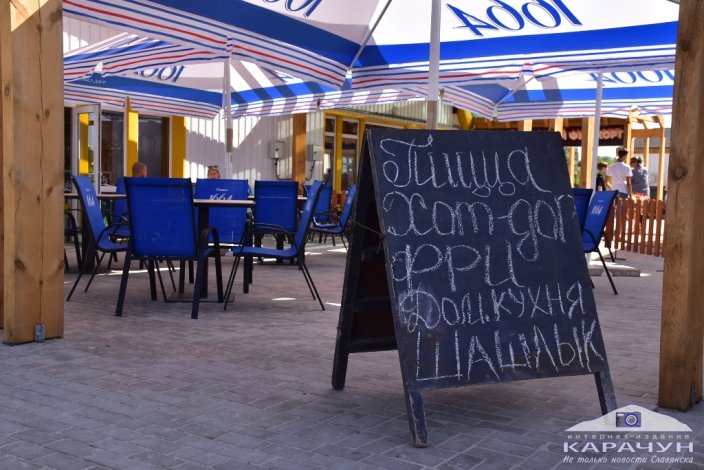 1664
1664
1664
1664
1664
Пицца
Хот-дог
ФРИ
Дом.кухня
ШАШЛЫК
интернет-издание
КАРАЧУН
Не только новости Славянска